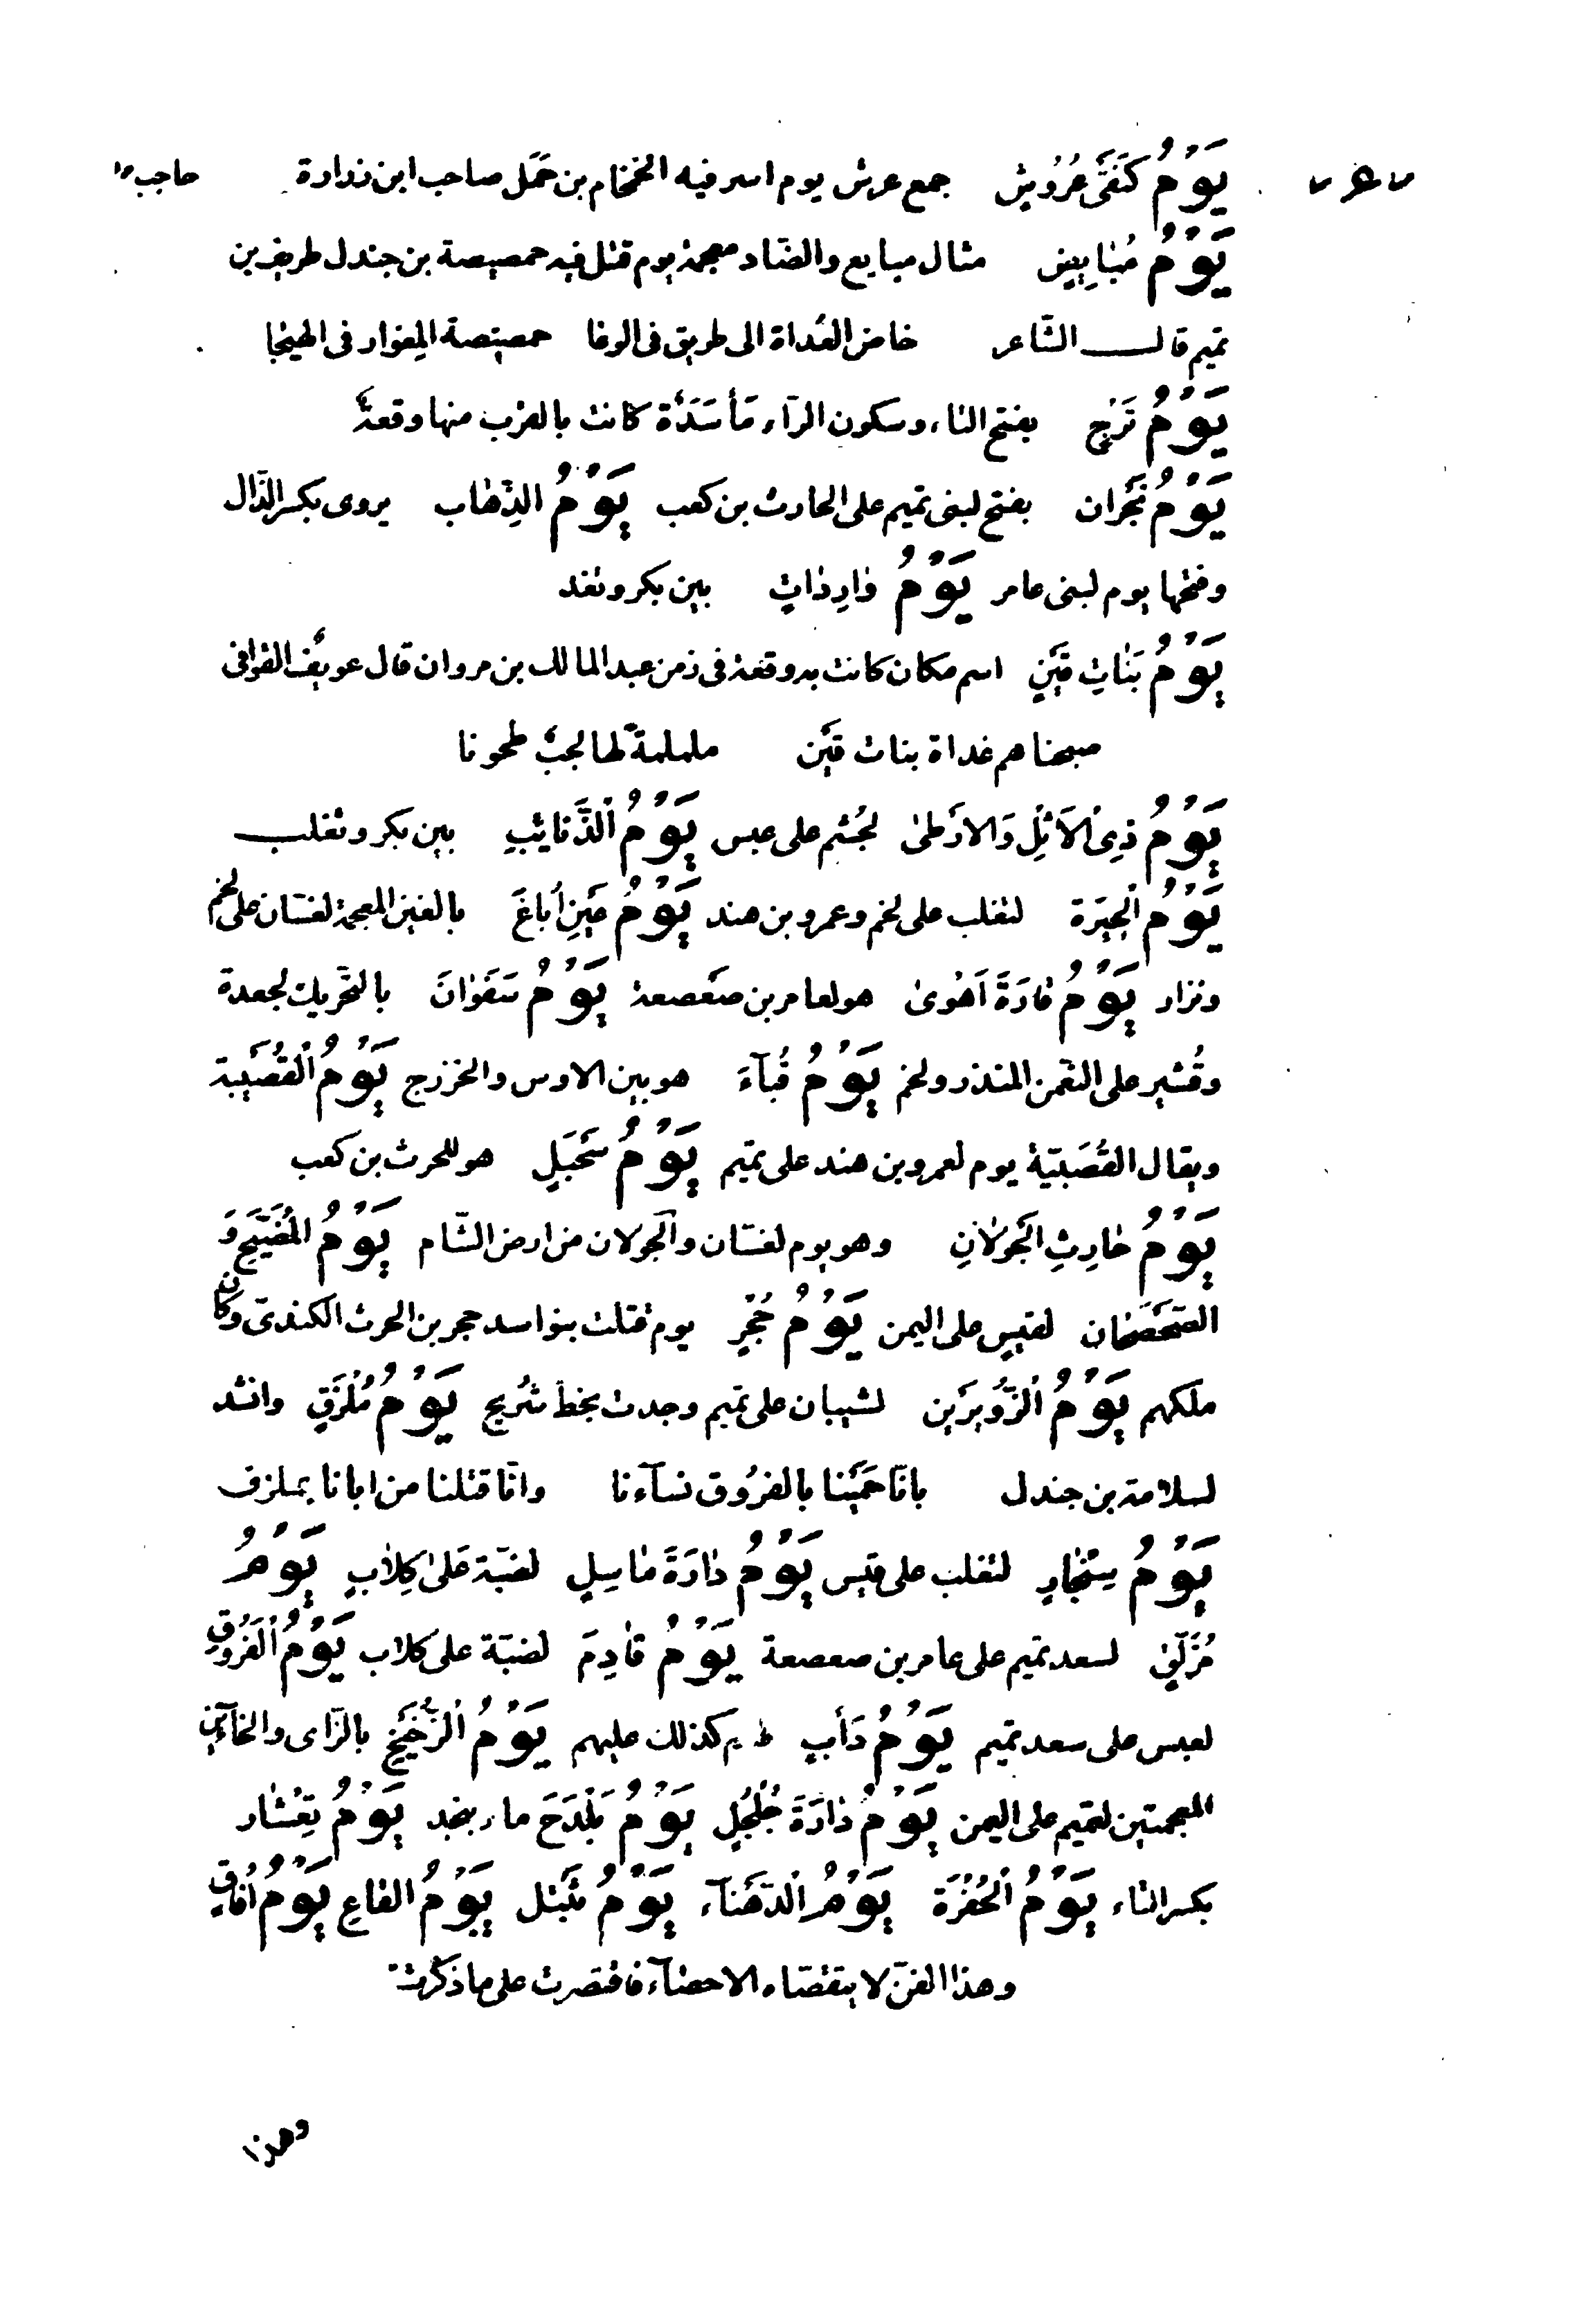 يَوْمُ كَنَفَىْ عُرُوُشٍ جمع عرش يوم اسر فيه الخمخام بن حَمَل صاحب ابن زرارة حاجب
يَوْمُ مُبٰايِضٍ مثال مبايع والضّاد معجمة يوم قتل فيه حمصيصة بن جندل طريف بن
تميم قال الشّاعر خاض الغُداة الى طريق فى الوغا حمصيصة المِغوار فى الهيجا
يَوْمُ تَرْجٍ بفتح التاء وسكون الرآء مَأسَدَة كانت بالقرب منها وقعة
يَوْمُ نَجْران بفتح لبنى تميم على الحارث بن كعب يَوْمُ الذِّهٰاب يروى بكسر الذّال
وفتحها يوم لبنى عامر يَوْمُ وٰارِدٰاتٍ بين بكر وتغلب
يَوْمُ بَنٰاتِ قَيْنٍ اسم مكان كانت به وقعة فى زمن عبد المالك بن مروان قال عويف القوافى
صبحناهم غداة بنات قَيْن ململمةً لها لجبٌ طحونا
يَوْمُ ذِى الْاَثْلِ وَالاَرْطىٰ لجُشم على عبس يَوْمُ اْلذَّنٰائِبِ بين بكر وتغلب
يَوْمُ اْلحِيَرة لتغلب على لخم وعمرو بن هند يَوْمُ عَيْنِ اُباغَ بالغين المعجمة لغسّان على لخم
ونزار يَوْمُ قٰارَةَ اَهْوىٰ هو لعامر بن صَعصعة يَوْمُ سَفَوٰانَ بالتّحريك لجعدة
وقُشير على النعمن المنذر ولخم يَوْمُ قُبآءَ هو بين الاوس والخزرج يَوْمُ اْلقُصَيْبة
ويقال القُصَبيّة يوم لعمرو بن هند على تميم يَوْمُ سَحْبَلٍ هو للحرث بن كعب
يَوْمُ حٰارِثِ الْجَوْلاٰنِ وهو يوم لغسّان والجَولان من ارض الشّام يَوْمُ المُضَيَّحِ وَ
الصَّحْصَحٰان لقيسٍ على اليمن يَوْمُ حُجْرٍ يوم قتلت بنو اسد حجر بن الحرث الكندىّ وكان
ملكهم يَوْمُ اْلزُّوَيْرَيْن لشيبان على تميم وجدت بخط شُريح يَوْمُ مُلْزَقٍ وانشد
لسلامة بن جندل بانّا حَمَيْنا بالفرُوق نسآءنا وانّا قتلنا من ابانا بملزق
يَوْمُ سِنْجٰارٍ لتغلب على قيس يَوْمُ دٰارَةَ مٰاسِلٍ لضبّة عَلىٰ كِلاٰبٍ يَوْمُ
مُزَلَّقٍ لسعد تميم على عامر بن صعصعة يَوْمُ قٰادِمَ لضبّة على كلاب يَوْمُ اْلفَرُوقِ
لعبس على سعد تميم يَوْمُ دَأبٍ كذلك عليهم يَوْمُ اْلزُّخَيْخِ بالزّاى والخآءَين
المعجمتين لتميم على اليمن يَوْمُ دٰارَةَ جُلْجُلٍ يَوْمُ بَلْدَحَ ماء بنجد يَوْمُ تِعْشٰار
بكسر التاء يَوْمُ اْلحُفْرَة يَوْمُ الْدّهْنآء يَوْمُ القاعِ يَوْمُ اُفاقٍ
وهذا الفنّ لا يتقصّاه الاحصآء فاقتصرت على ما ذكرت
وهذا